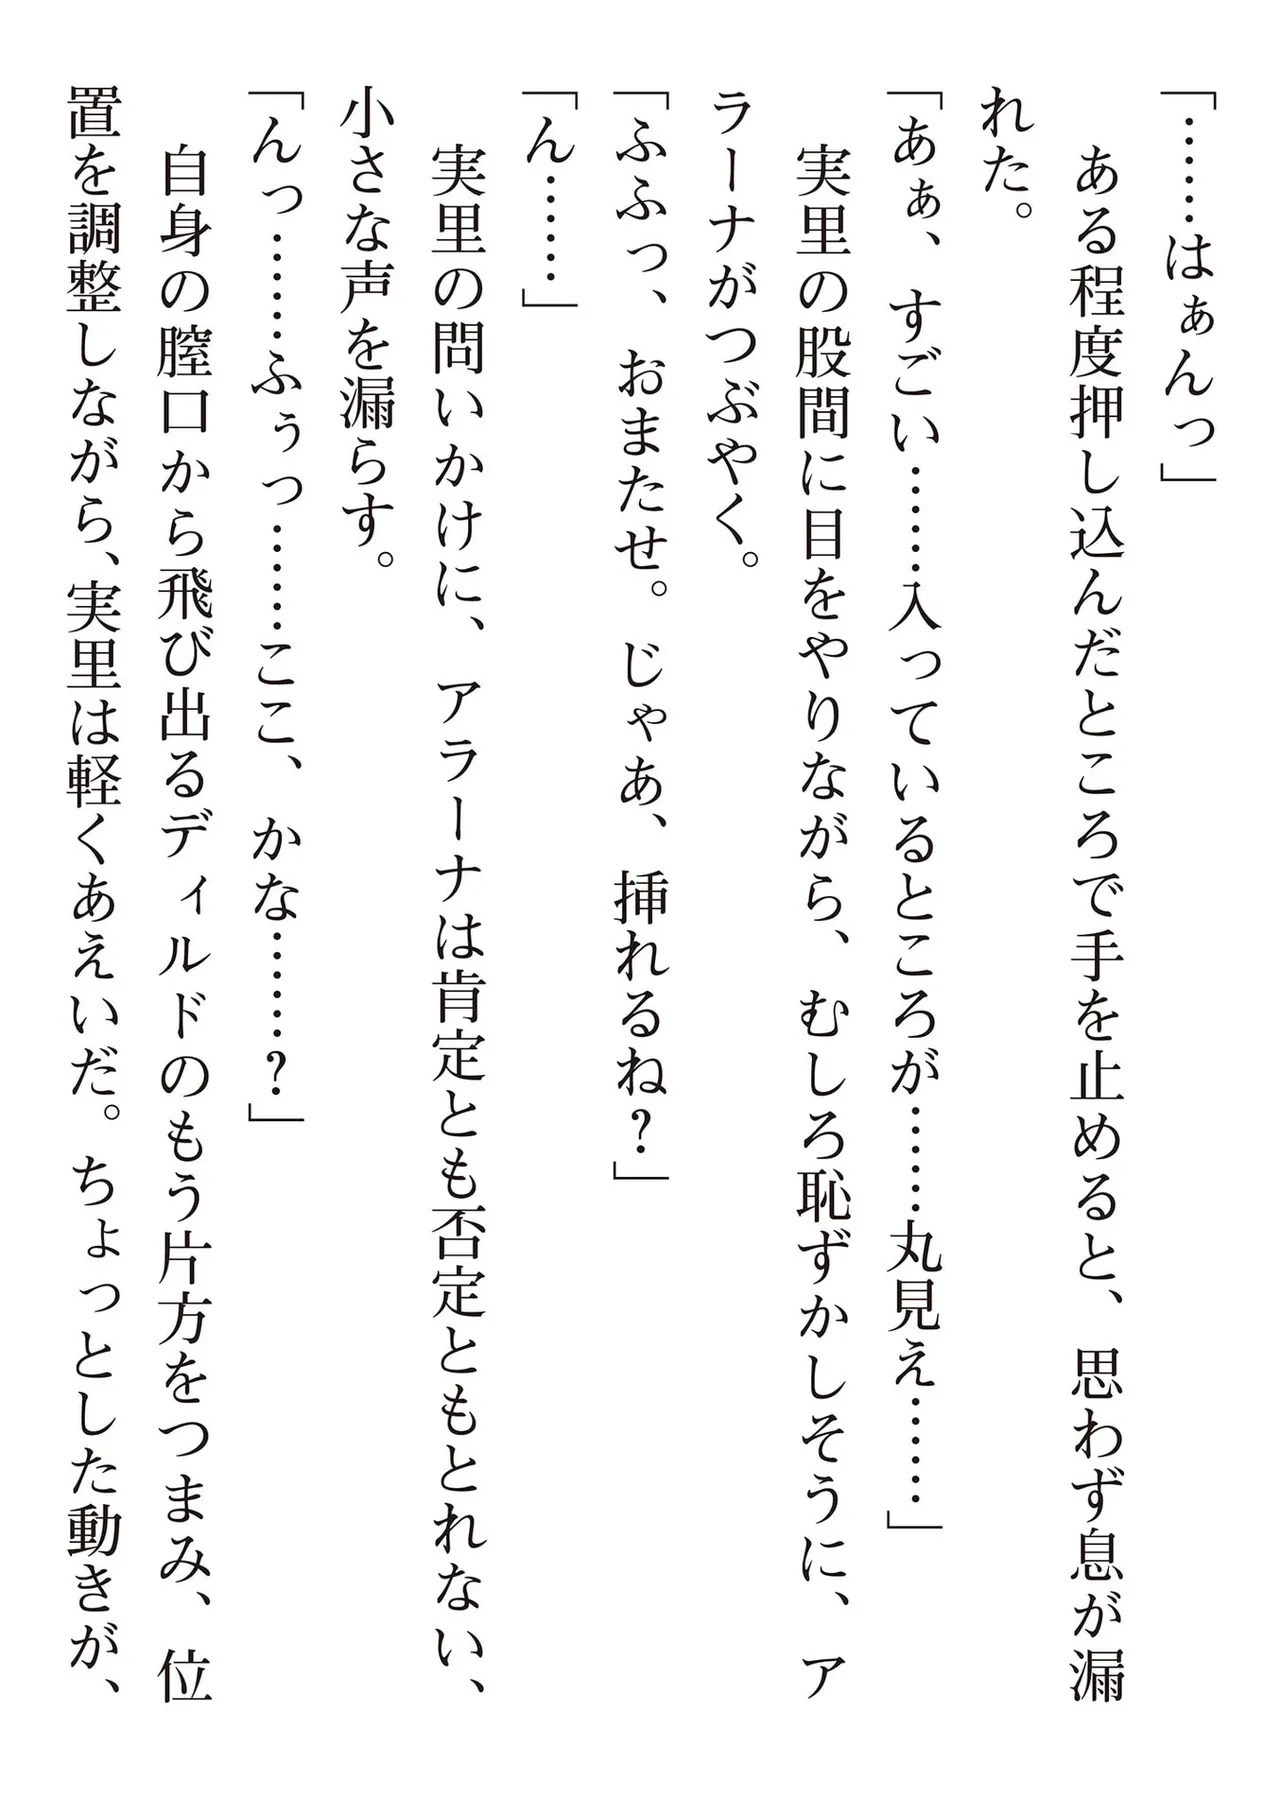 「……はぁんっ」
　ある程度押し込んだところで手を止めると、思わず息が漏
れた。
「あぁ、すごい……入っているところが……丸見え……」
　実里の股間に目をやりながら、むしろ恥ずかしそうに、ア
ラーナがつぶやく。
「ふふっ、おまたせ。じゃあ、挿れるね？」
「ん……」
　実里の問いかけに、アラーナは肯定とも否定ともとれない、
小さな声を漏らす。
「んっ……ふぅっ……ここ、かな……？」
　自身の膣口から飛び出るディルドのもう片方をつまみ、位
置を調整しながら、実里は軽くあえいだ。ちょっとした動きが、